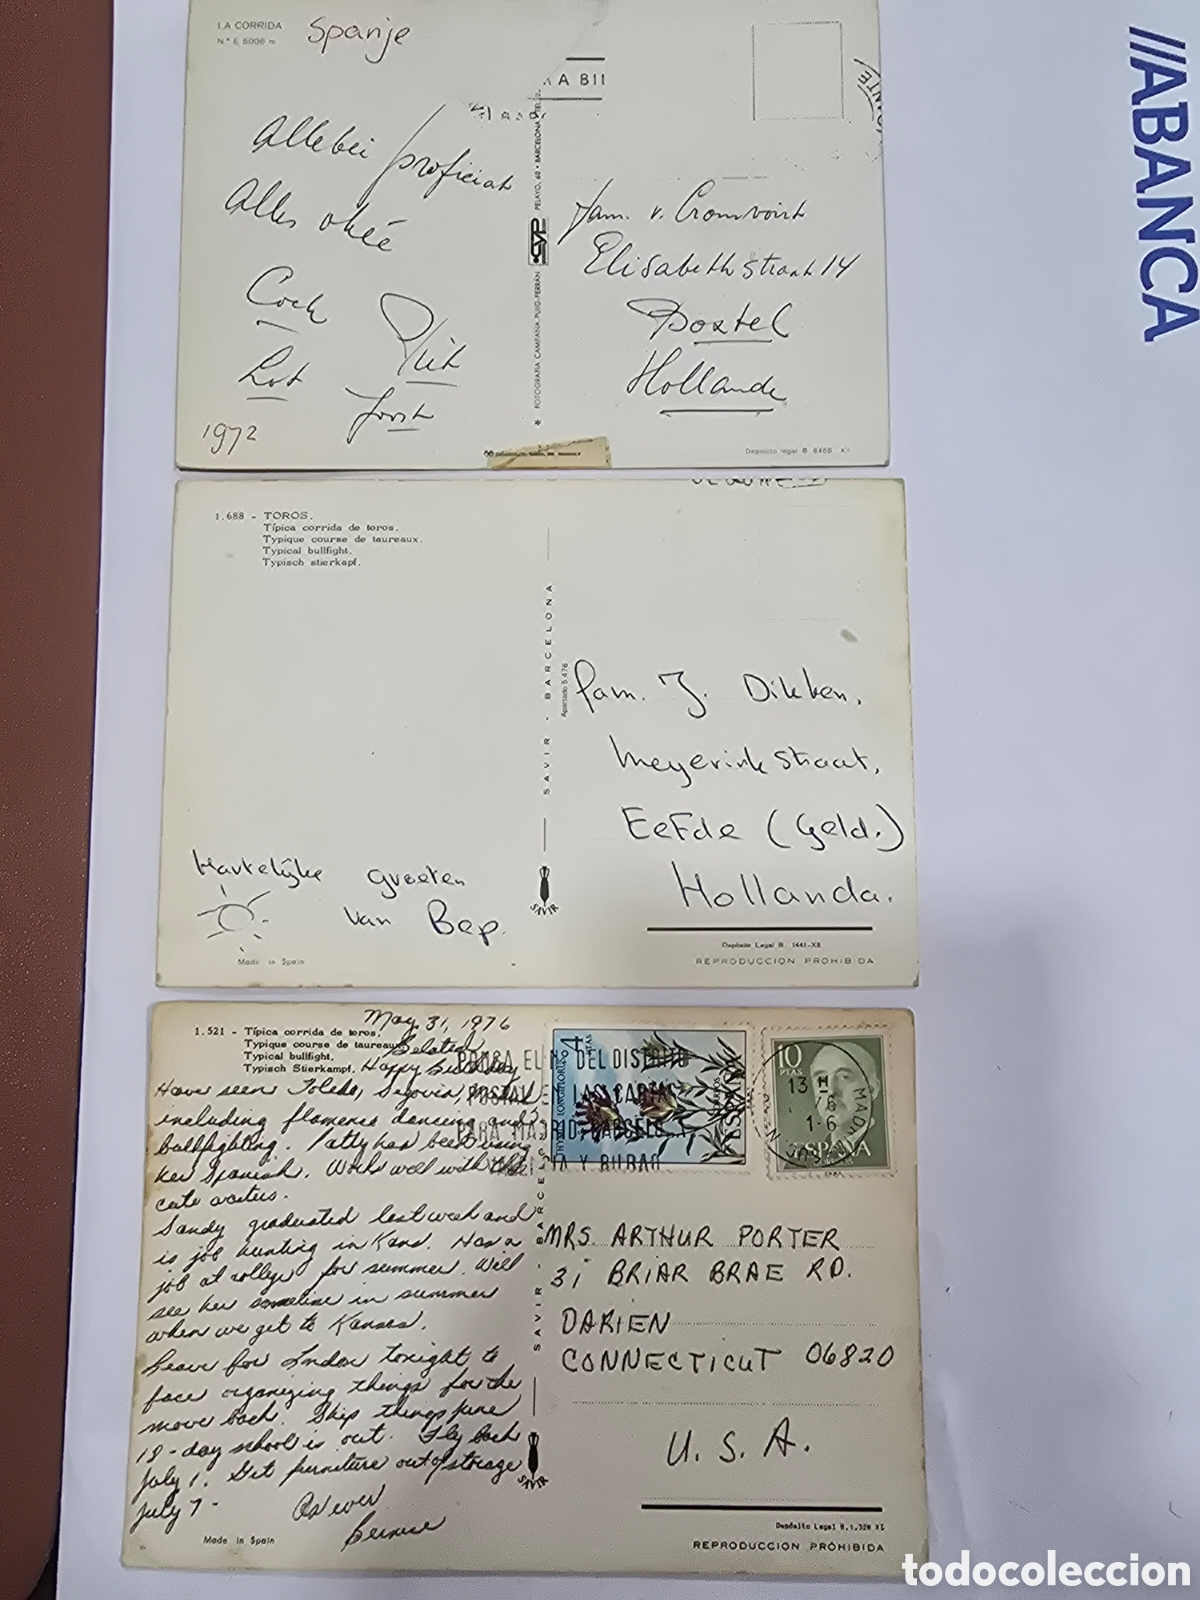 LA CORRIDA
Nº E 6006 m
Spanje
RA BII
Allebei proficiat
Alles okée
Cock
Piet
Lot
Joost
1972
* FOTOGRAFIA CAMPAÑA PUIG-FERRÁN CYP PELAYO, 60 • BARCELONA
Fam. v. Cromvoirt
Elisabethstraat 14
Boxtel
Hollande
Depósito legal B 6468 XII
1.688 - TOROS.
Típica corrida de toros.
Typique course de taureaux.
Typical bullfight.
Typisch stierkapf.
SAVIR - BARCELONA
Apartado 5.476
Fam. J. Dikken,
Meyerinkstraat,
EeFde (Geld.)
Hollanda.
Hartelijke groeten
van Bep.
SAVIR
Made in Spain
Depósito Legal B. 1441-XII
REPRODUCCION PROHIBIDA
May 31, 1976
1.521 - Típica corrida de toros.
Typique course de taureaux
Typical bullfight.
Typisch Stierkampf.
Belated
Happy Birthday
Have seen Toledo, Segovia,
including flamenco dancing and
bullfighting. Patty has been using
her Spanish. Works well with the
cute waiters.
Sandy graduated last week and
is job hunting in Kans. Has a
job at college for summer. Will
see her sometime in summer
when we get to Kansas.
Leave for London tonight to
face organizing things for the
move back. Ship things June
18 - day school is out. Fly back
July 1. Get furniture out of storage
July 7 -
As ever
Bernice
Made in Spain
PONGA EL Nº DEL DISTRITO
POSTAL EN LAS CARTAS
PARA MADRID, BARCELONA
Y BILBAO
4 PTAS
CORREOS
ESPAÑA
10
PTAS
ESPAÑA
MADRID
13 H
76
1-6
SAVIR - BARCE
MRS. ARTHUR PORTER
31 BRIAR BRAE RD.
DARIEN
CONNECTICUT 06820
U. S. A.
SAVIR
Depósito Legal B. 1.328 XI
REPRODUCCION PROHIBIDA
//ABANCA
todocoleccion